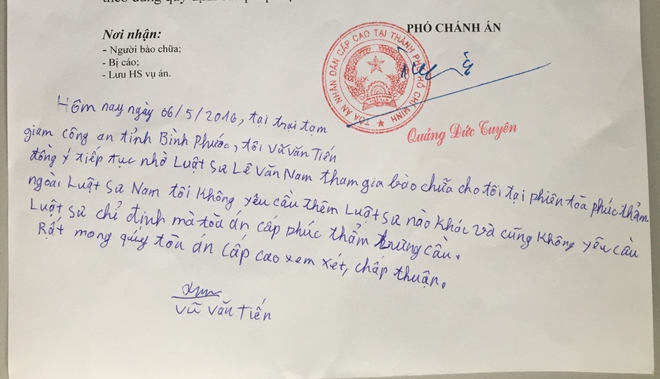 Nơi nhận:
- Người bào chữa;
- Bị cáo;
- Lưu HS vụ án.
PHÓ CHÁNH ÁN
TÒA ÁN NHÂN DÂN CẤP CAO TẠI THÀNH PHỐ HỒ CHÍ MINH
Quảng Đức Tuyên
Hôm nay ngày 06/5/2016, tại trại tạm
giam công an tỉnh Bình Phước, tôi Vũ Văn Tiến
đồng ý tiếp tục nhờ Luật sư Lê Văn Nam tham gia bào chữa cho tôi tại phiên tòa phúc thẩm
ngoài Luật sư Nam tôi Không yêu cầu thêm Luật sư nào Khác và cũng Không yêu cầu
Luật sư chỉ định mà tòa án cấp phúc thẩm trưng cầu.
Rất mong quý tòa án cấp cao xem xét, chấp thuận.
Vũ Văn Tiến